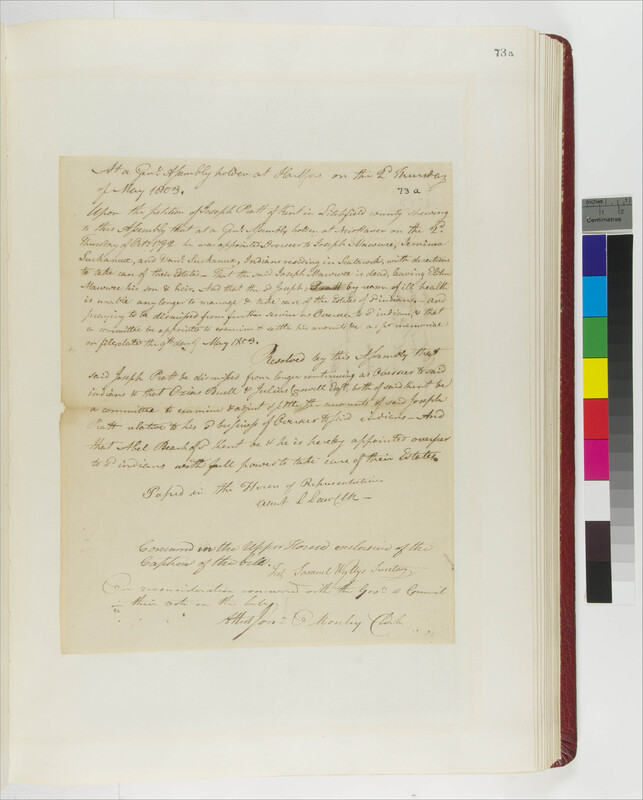 73a
At a Genl Assembly holden at Hartford on the 2d Thursday
of May 1803.
73 a
Upon the petition of Joseph Pratt of Kent in Litchfield county shewing
to this Assembly that at a Genl Assembly holden at New Haven on the 2d
Thursday of Octr 1792 he was appointed Overseer to Joseph Mawwee, Jemima
Suckanux, and Danl Suckanux, Indians residing in Scaticook, with directions
to take care of their Estates - that the said Joseph Mawwee is dead, leaving
Mawwee his son & heir. And that the sd Joseph by reason of ill health
is unable any longer to manage & take care of the Estates of sd indians, - and
praying to be dismissed from further service as Overseer to sd indians, & that
a committee be appointed to examine & settle his accounts &c as pr memorial
on file, date the 9th day of May 1803.
Resolved by this Assembly that
said Joseph Pratt be dismissed from longer continuing as Overseer to said
indians & that Ozias Buell & Julius Esqrs, both of said Kent be
a committee to examine & adjust & settle the accounts of said Joseph
Pratt relative to his sd business of Overseer to said indians - And
that Abel Beach of sd Kent be & he is hereby appointed overseer
to sd indians with full power to take care of their Estates.
Passed in the House of Representatives
Attest L Law Clk -
Concurred in the Upper House exclusive of the
Caption of the bill.
Test Samuel Wyllys Secretary
On reconsideration concurred with the Govr & Council
in their vote on the
Attest Clerk
Inches
1
2
Centimetres